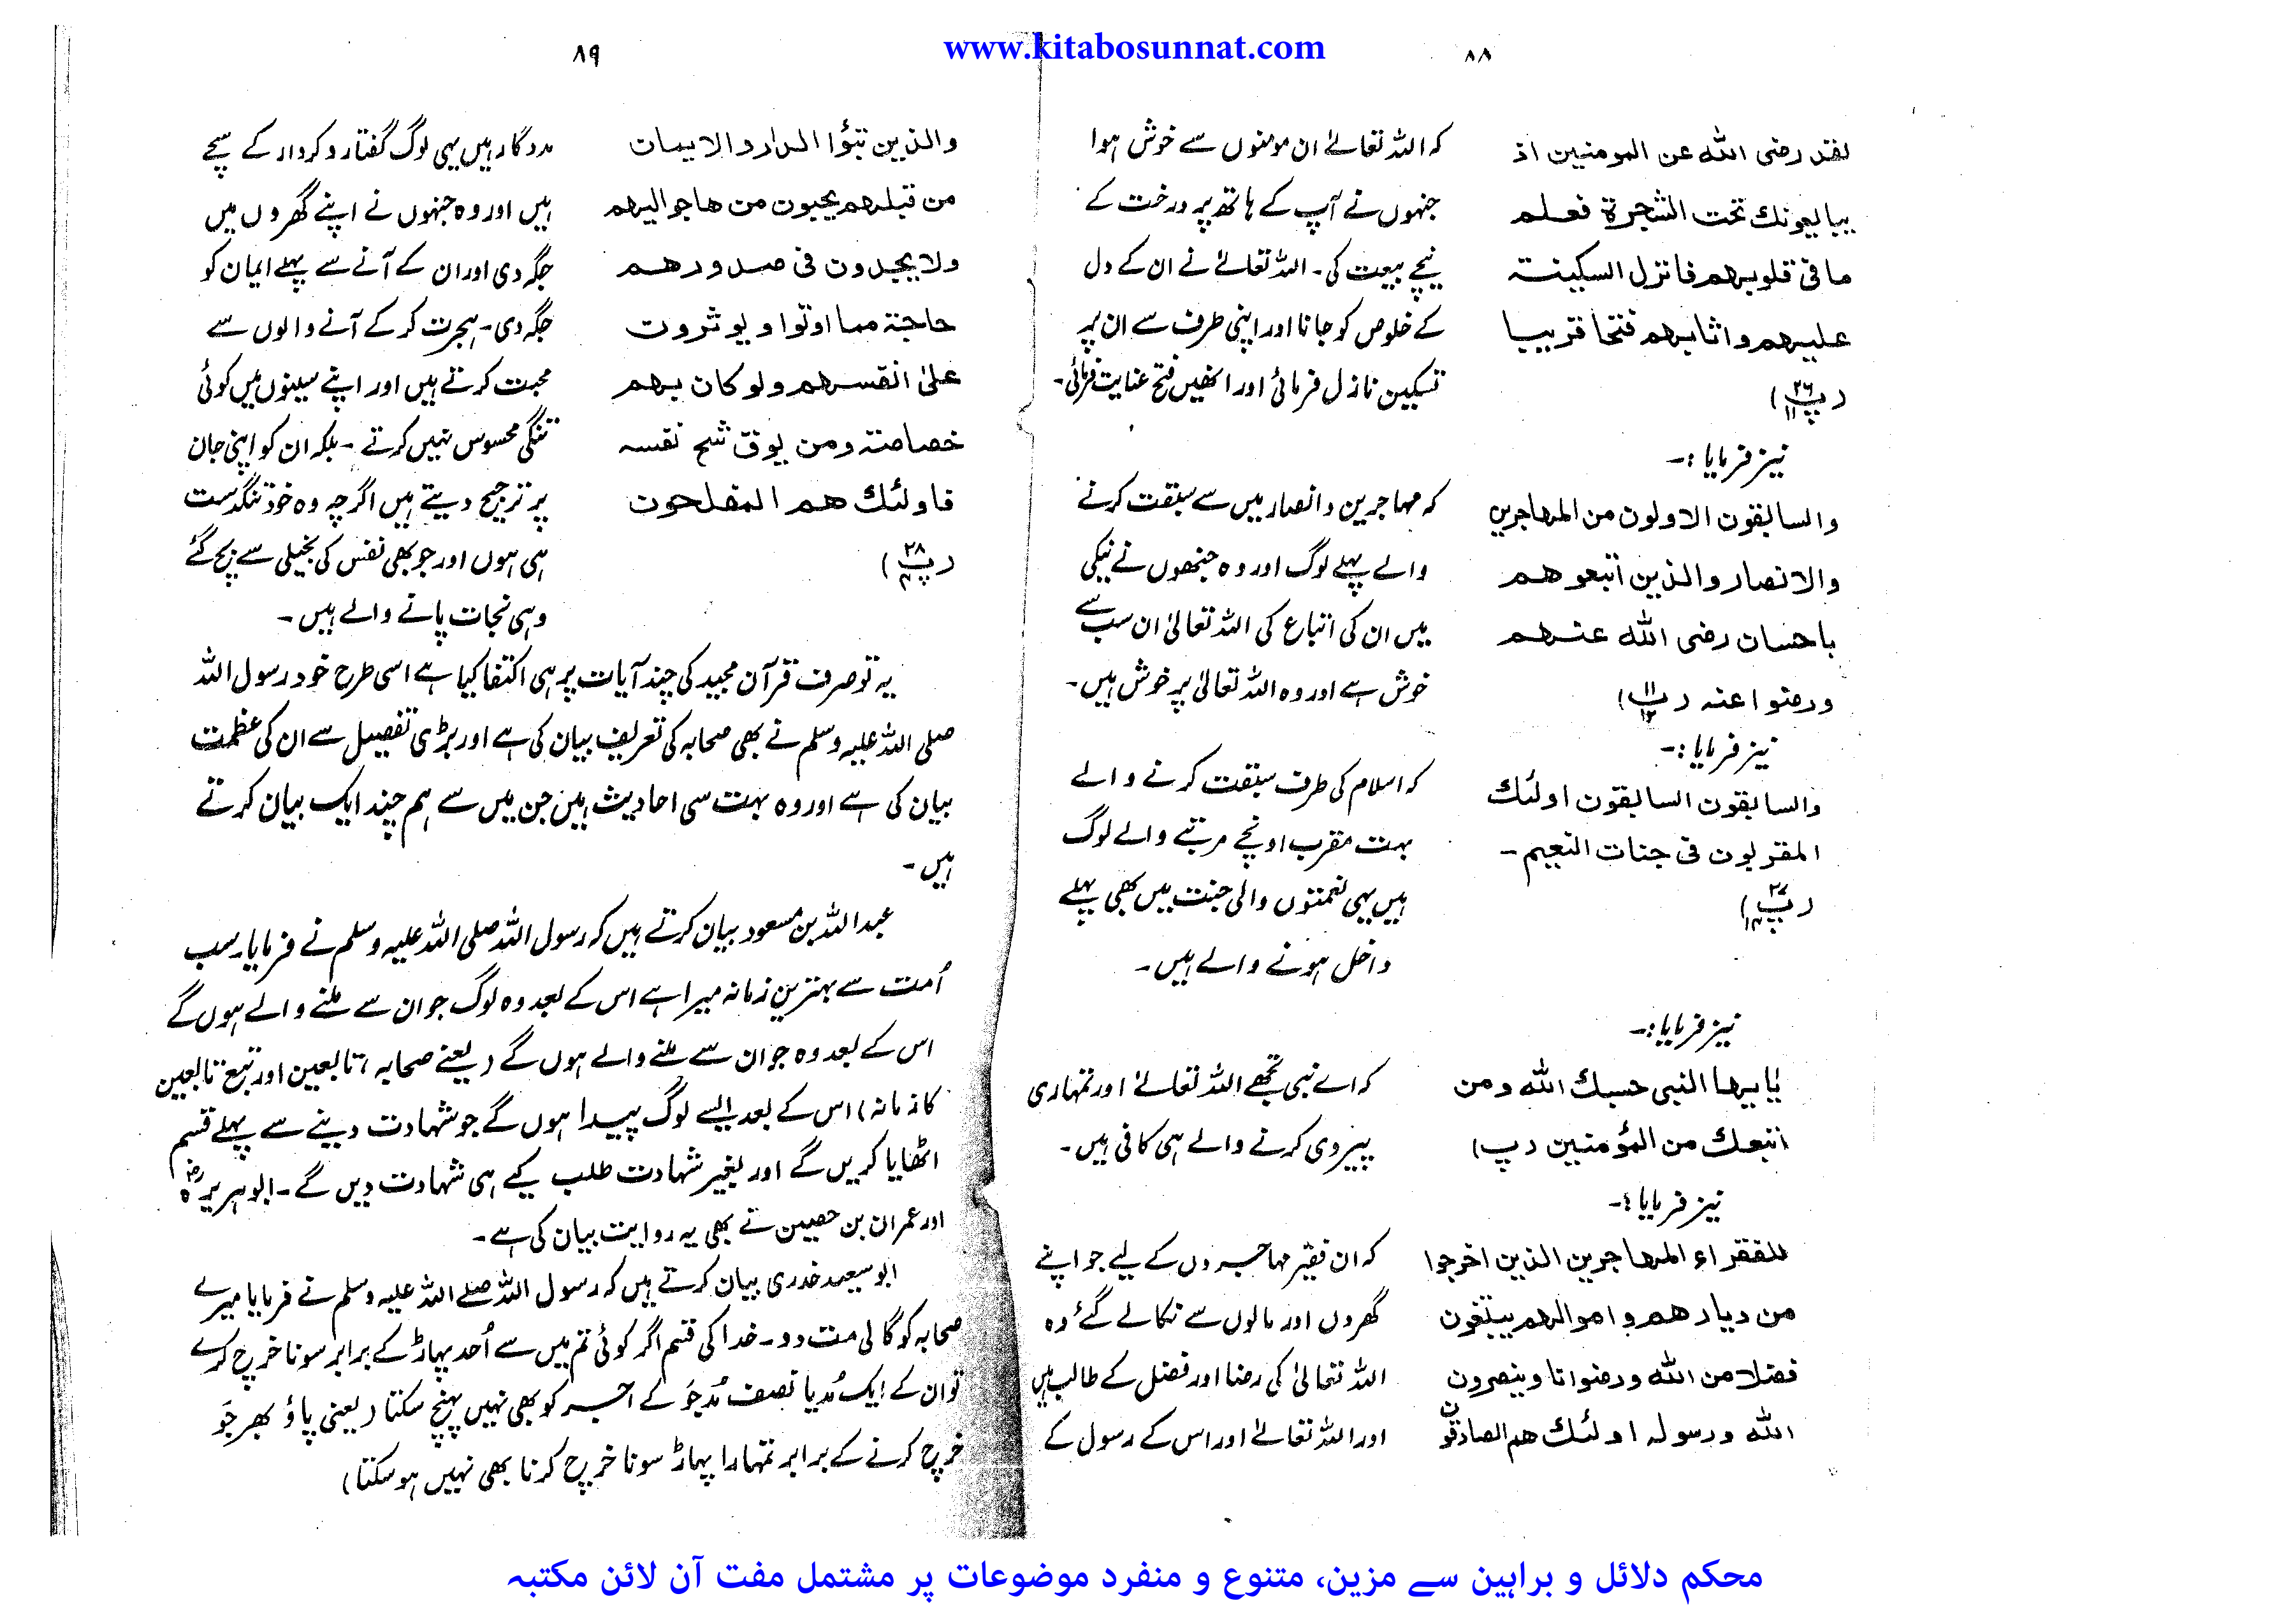 www.kitabosunnat.com
۸۸
لقد رضی اللہ عن المومنین اذ
یبایعونك تحت الشجرة فعلم
ما فی قلوبهم فانزل السکینة
علیهم واثابهم فتحا قریبا
(پ ۲۶ ۱۱)
کہ اللہ تعالےٰ ان مومنوں سے خوش ہوا
جنہوں نے آپ کے ہاتھ پر درخت کے
نیچے بیعت کی۔ اللہ تعالےٰ نے ان کے دل
کے خلوص کو جانا اور اپنی طرف سے ان پر
تسکین نازل فرمائی اور انھیں فتح عنایت فرمائی۔
نیز فرمایا :۔
والسابقون الاولون من المهاجرین
والانصار والذین اتبعوهم
باحسان رضی اللہ عنهم
ورضوا عنہ (پ ۱۱)
کہ مہاجرین و انصار میں سے سبقت کرنے
والے پہلے لوگ اور وہ جنھوں نے نیکی
میں ان کی اتباع کی اللہ تعالیٰ ان سب سے
خوش ہے اور وہ اللہ تعالیٰ پر خوش ہیں۔
نیز فرمایا :۔
والسابقون السابقون اولئك
المقربون فی جنات النعیم۔
(پ ۲۷)
کہ اسلام کی طرف سبقت کرنے والے
بہت مقرب اونچے مرتبے والے لوگ
ہیں یہی نعمتوں والی جنت میں بھی پہلے
داخل ہونے والے ہیں۔
نیز فرمایا :۔
یٰایها النبی حسبك اللہ ومن
اتبعك من المؤمنین (پ)
کہ اے نبی تجھے اللہ تعالےٰ اور تمہاری
پیروی کرنے والے ہی کافی ہیں۔
نیز فرمایا :۔
للفقراء المهاجرین الذین اخرجوا
من دیارهم و اموالهم یبتغون
فضلا من اللہ ورضوانا وینصرون
اللہ ورسولہ اولئك هم الصادقون
کہ ان فقیر مہاجروں کے لیے جو اپنے
گھروں اور مالوں سے نکالے گئے وہ
اللہ تعالیٰ کی رضا اور فضل کے طالب ہیں
اور اللہ تعالےٰ اور اس کے رسول کے
۸۹
والذین تبوٴا الدار والایمان
من قبلهم یحبون من هاجر الیهم
ولا یجدون فی صدورهم
حاجة مما اوتوا ویوثرون
علیٰ انفسهم ولو کان بهم
خصاصة ومن یوق شح نفسہ
فاولئك هم المفلحون
(پ ۲۸ ۴)
مددگار ہیں یہی لوگ گفتار و کردار کے سچے
ہیں اور وہ جنہوں نے اپنے گھروں میں
جگہ دی اور ان کے آنے سے پہلے ایمان کو
جگہ دی۔ ہجرت کر کے آنے والوں سے
محبت کرتے ہیں اور اپنے سینوں میں کوئی
تنگی محسوس نہیں کرتے۔ بلکہ ان کو اپنی جان
پر ترجیح دیتے ہیں اگرچہ وہ خود تنگدست
ہی ہوں اور جو بھی نفس کی بخیلی سے بچ گئے
وہی نجات پانے والے ہیں۔
یہ تو صرف قرآن مجید کی چند آیات پر ہی اکتفا کیا ہے اسی طرح خود رسول اللہ
صلی اللہ علیہ وسلم نے بھی صحابہ کی تعریف بیان کی ہے اور بڑی تفصیل سے ان کی عظمت
بیان کی ہے اور وہ بہت سی احادیث ہیں جن میں سے ہم چند ایک بیان کرتے
ہیں۔
عبداللہ بن مسعود بیان کرتے ہیں کہ رسول اللہ صلی اللہ علیہ وسلم نے فرمایا۔ سب
اُمت سے بہترین زمانہ میرا ہے اس کے بعد وہ لوگ جو ان سے ملنے والے ہوں گے
اس کے بعد وہ جو ان سے ملنے والے ہوں گے (یعنے صحابہ، تابعین اور تبع تابعین
کا زمانہ) اس کے بعد ایسے لوگ پیدا ہوں گے جو شہادت دینے سے پہلے قسم
اٹھایا کریں گے اور بغیر شہادت طلب کیے ہی شہادت دیں گے۔ ابوہریرہ رضؓ
اور عمران بن حصین نے بھی یہ روایت بیان کی ہے۔
ابو سعید خدری بیان کرتے ہیں کہ رسول اللہ صلے اللہ علیہ وسلم نے فرمایا میرے
صحابہ کو گالی مت دو۔ خدا کی قسم اگر کوئی تم میں سے اُحد پہاڑ کے برابر سونا خرچ کرے
تو ان کے ایک مُد یا نصف مُد جَو کے اجر کو بھی نہیں پہنچ سکتا (یعنی پاؤ بھر جَو
خرچ کرنے کے برابر تمہارا پہاڑ سونا خرچ کرنا بھی نہیں ہو سکتا)
محکم دلائل و براہین سے مزین، متنوع و منفرد موضوعات پر مشتمل مفت آن لائن مکتبہ